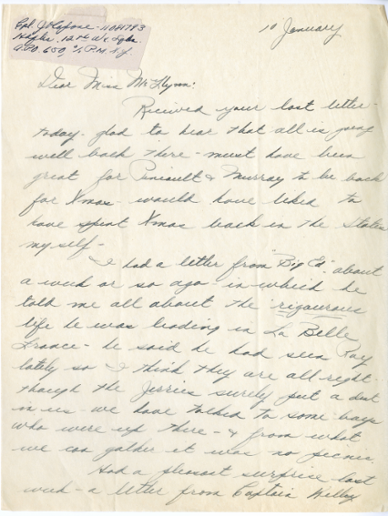 Cpl. J. Capone - 11041783
Hqs. 12th
A.P.O. 650, % P.M. N.Y.
10 January
Dear Miss McFlynn:
Received your last letter
today - glad to hear that all is going
well back there - must have been
great for & Murray to be back
for Xmas - would have liked to
have spent Xmas back in the States
myself -
I had a letter from "Big Ed" about
a week or so ago in which he
told me all about the rigourous
life he was leading in La Belle
France - he said he had seen Ray
lately so I think they are all right -
though the Jerries surely put a dent
in us - we have talked to some boys
who were up there - & from what
we can gather it was no picnic
Had a pleasant surprise last
week - a letter from Captain